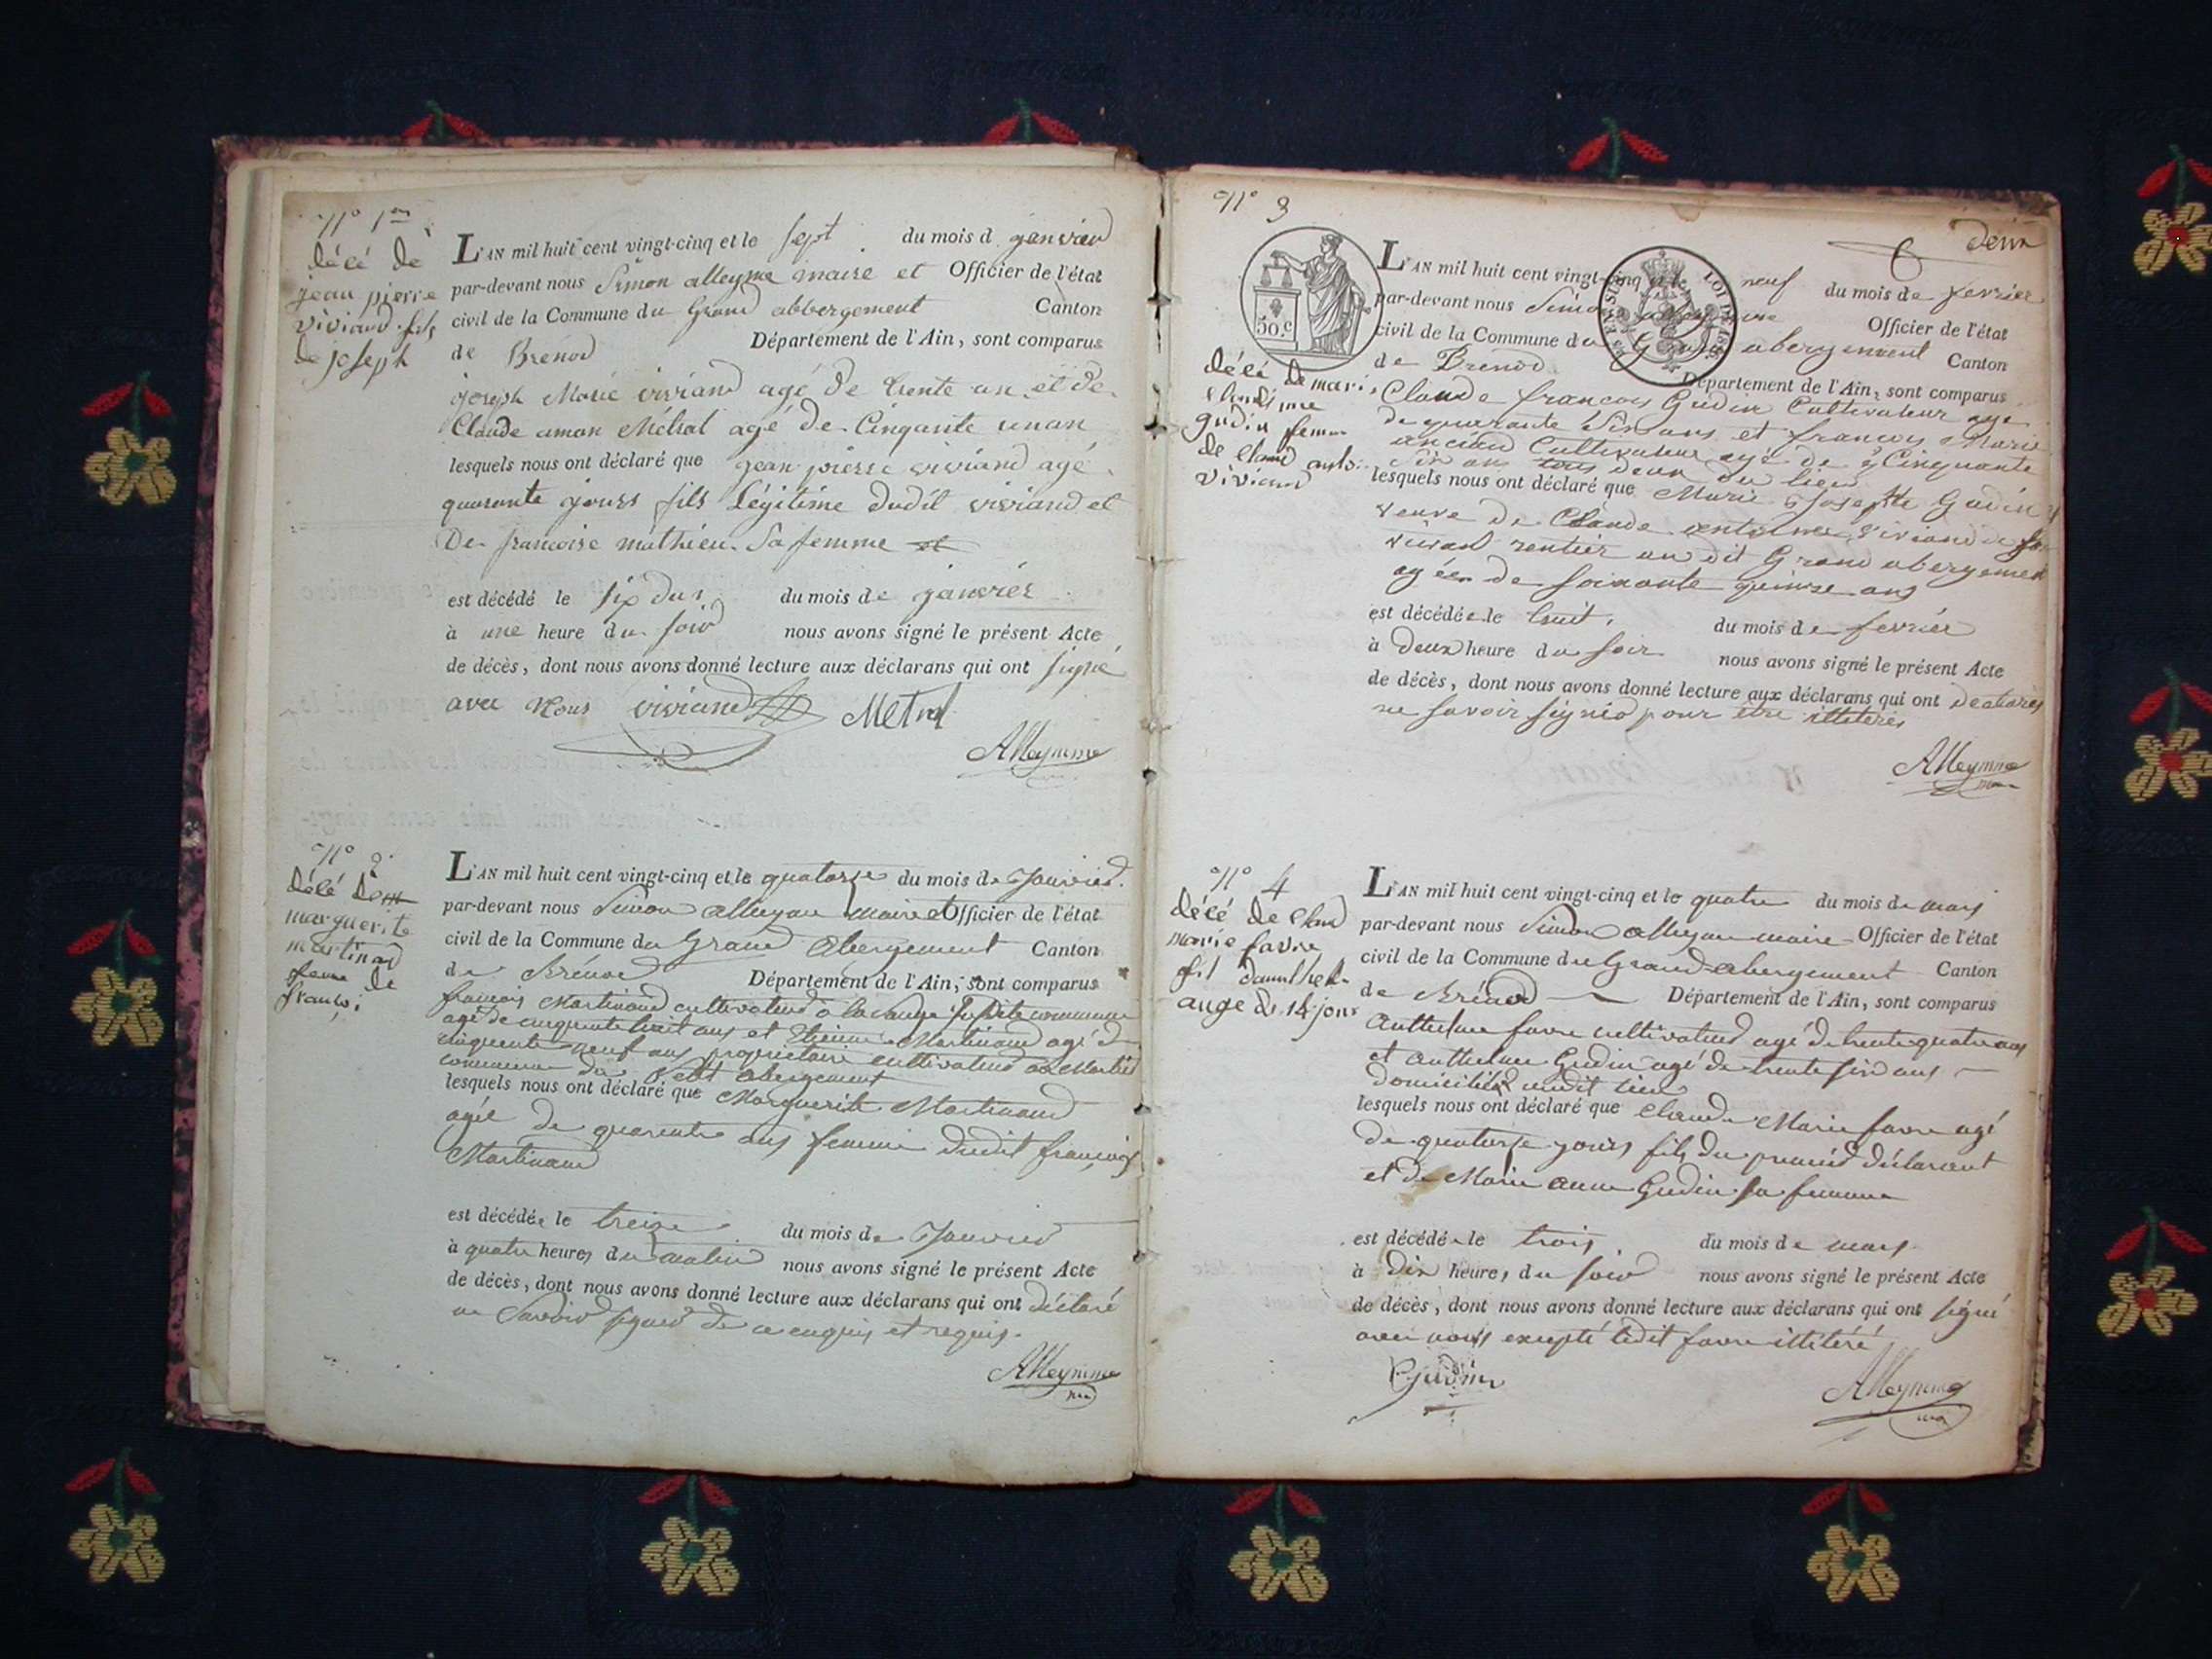 N° 1er
décé de
jean pierre
viviand fils
de joseph
L'AN mil huit cent vingt-cinq et le sept du mois d janvier
par-devant nous Simon alleyme maire et Officier de l'état
civil de la Commune du Grand abbergement Canton
de Brenod Département de l'Ain, sont comparus
joseph Marie viviand agé de trente un et de
Claude aman Métral agé de Cinqante unan
lesquels nous ont déclaré que jean pierre viviand agé
quarante jours fils Légitime dudit viviand et
De françoise mathieu Sa femme
est décédé le six du du mois de janvier
à une heure du soir nous avons signé le présent Acte
de décès, dont nous avons donné lecture aux déclarans qui ont signé
avec Nous viviand Metral
Alleymme
N° 2
décé
marguerite
martinad
feme de
françoi
L'AN mil huit cent vingt-cinq et le quatorze du mois de Janvier
par-devant nous Simon alleyme maire et Officier de l'état
civil de la Commune du Grand Abergement Canton
de Brénod Département de l'Ain, sont comparus
françois Martinand cultivateur à commune
agé de cinquante huit ans et Etienne Martinand agé de
cinquante neuf ans propriétaire cultivateur
commune du Petit Abergement
lesquels nous ont déclaré que Marguerite Martinand
agée de quarante ans femme dudit françois
Martinand
est décédée le treize du mois de Janvier
à quatre heures du matin nous avons signé le présent Acte
de décès, dont nous avons donné lecture aux déclarans qui ont déclaré
ne Savoir signer de ce enquis et requis.
Alleymme
N° 3
deux
6
50 c
LOI DE 1816
L'AN mil huit cent vingt-cinq et le neuf du mois de fevrier
par-devant nous Simon Officier de l'état
civil de la Commune du Grand abergement Canton
de Brenod Département de l'Ain, sont comparus
décé de mari
gudin femme
de claud anto
viviand
Claude françois Gudin Cultivateur age
de quarante Six ans et françois Marie
ancian Cultivateur agé de Cinquante
Six ans tous deux du lieu
lesquels nous ont déclaré que Marie Josephte Gudin
veuve de Claude antoine Viviand de son
vivant rentier au dit Grand abergement
agée de soixante quinze ans
est décédée le huit du mois de fevrier
à Deux heure du soir nous avons signé le présent Acte
de décès, dont nous avons donné lecture aux déclarans qui ont declarés
ne savoir signér pour être illiterés
Alleymme
N° 4
décé de claud
marie favre
fil danthel
auge de 14 jour
L'AN mil huit cent vingt-cinq et le quatre du mois de mars
par-devant nous Simon alleyme maire Officier de l'état
civil de la Commune du Grand abergement Canton
de Brénod Département de l'Ain, sont comparus
Anthelme favre cultivateur agé de trente quatre ans
et Anthelme Gudin agé de trente six ans
domiciliés audit lieu
lesquels nous ont déclaré que Claude Marie favre agé
de quatorze jours fils du premier déclarant
et de Marie Anne Gudin sa femme
est décédé le trois du mois de mars
à dix heures du soir nous avons signé le présent Acte
de décès, dont nous avons donné lecture aux déclarans qui ont signé
avec nous excepté ledit favre illitéré
Gudin
Alleymme